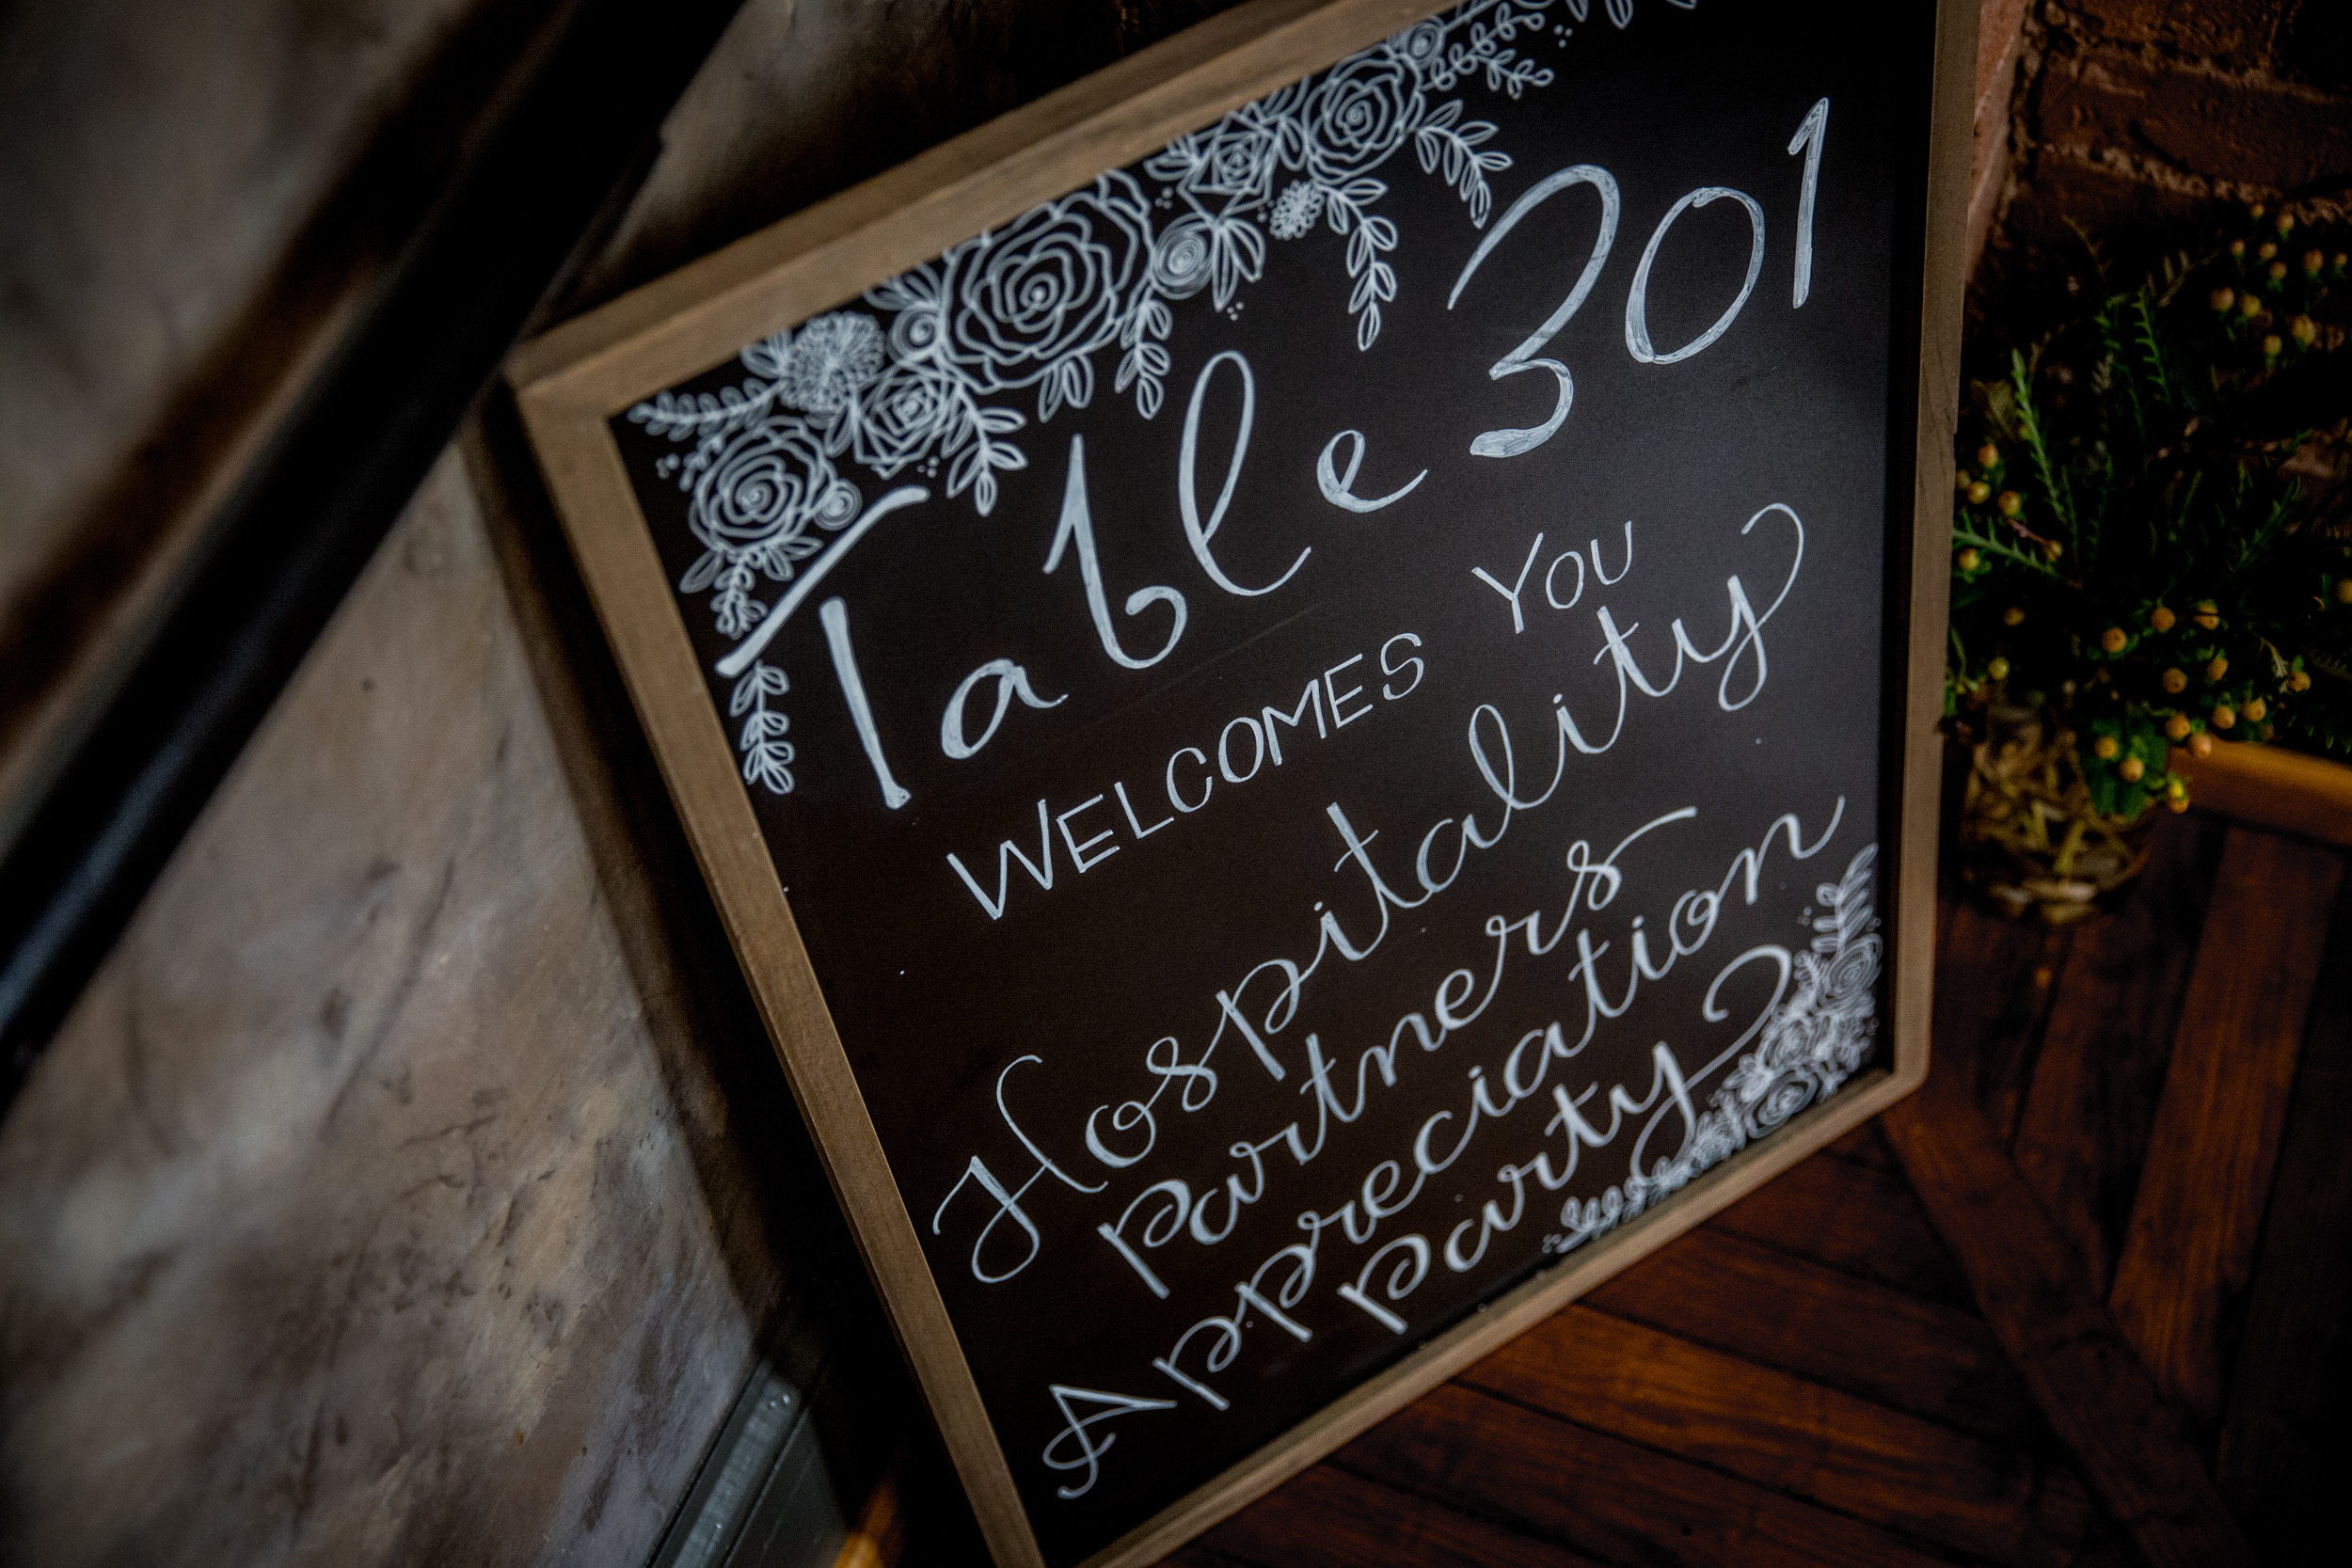 Table 301
WELCOMES YOU
Hospitality
Partners
Appreciation
Party